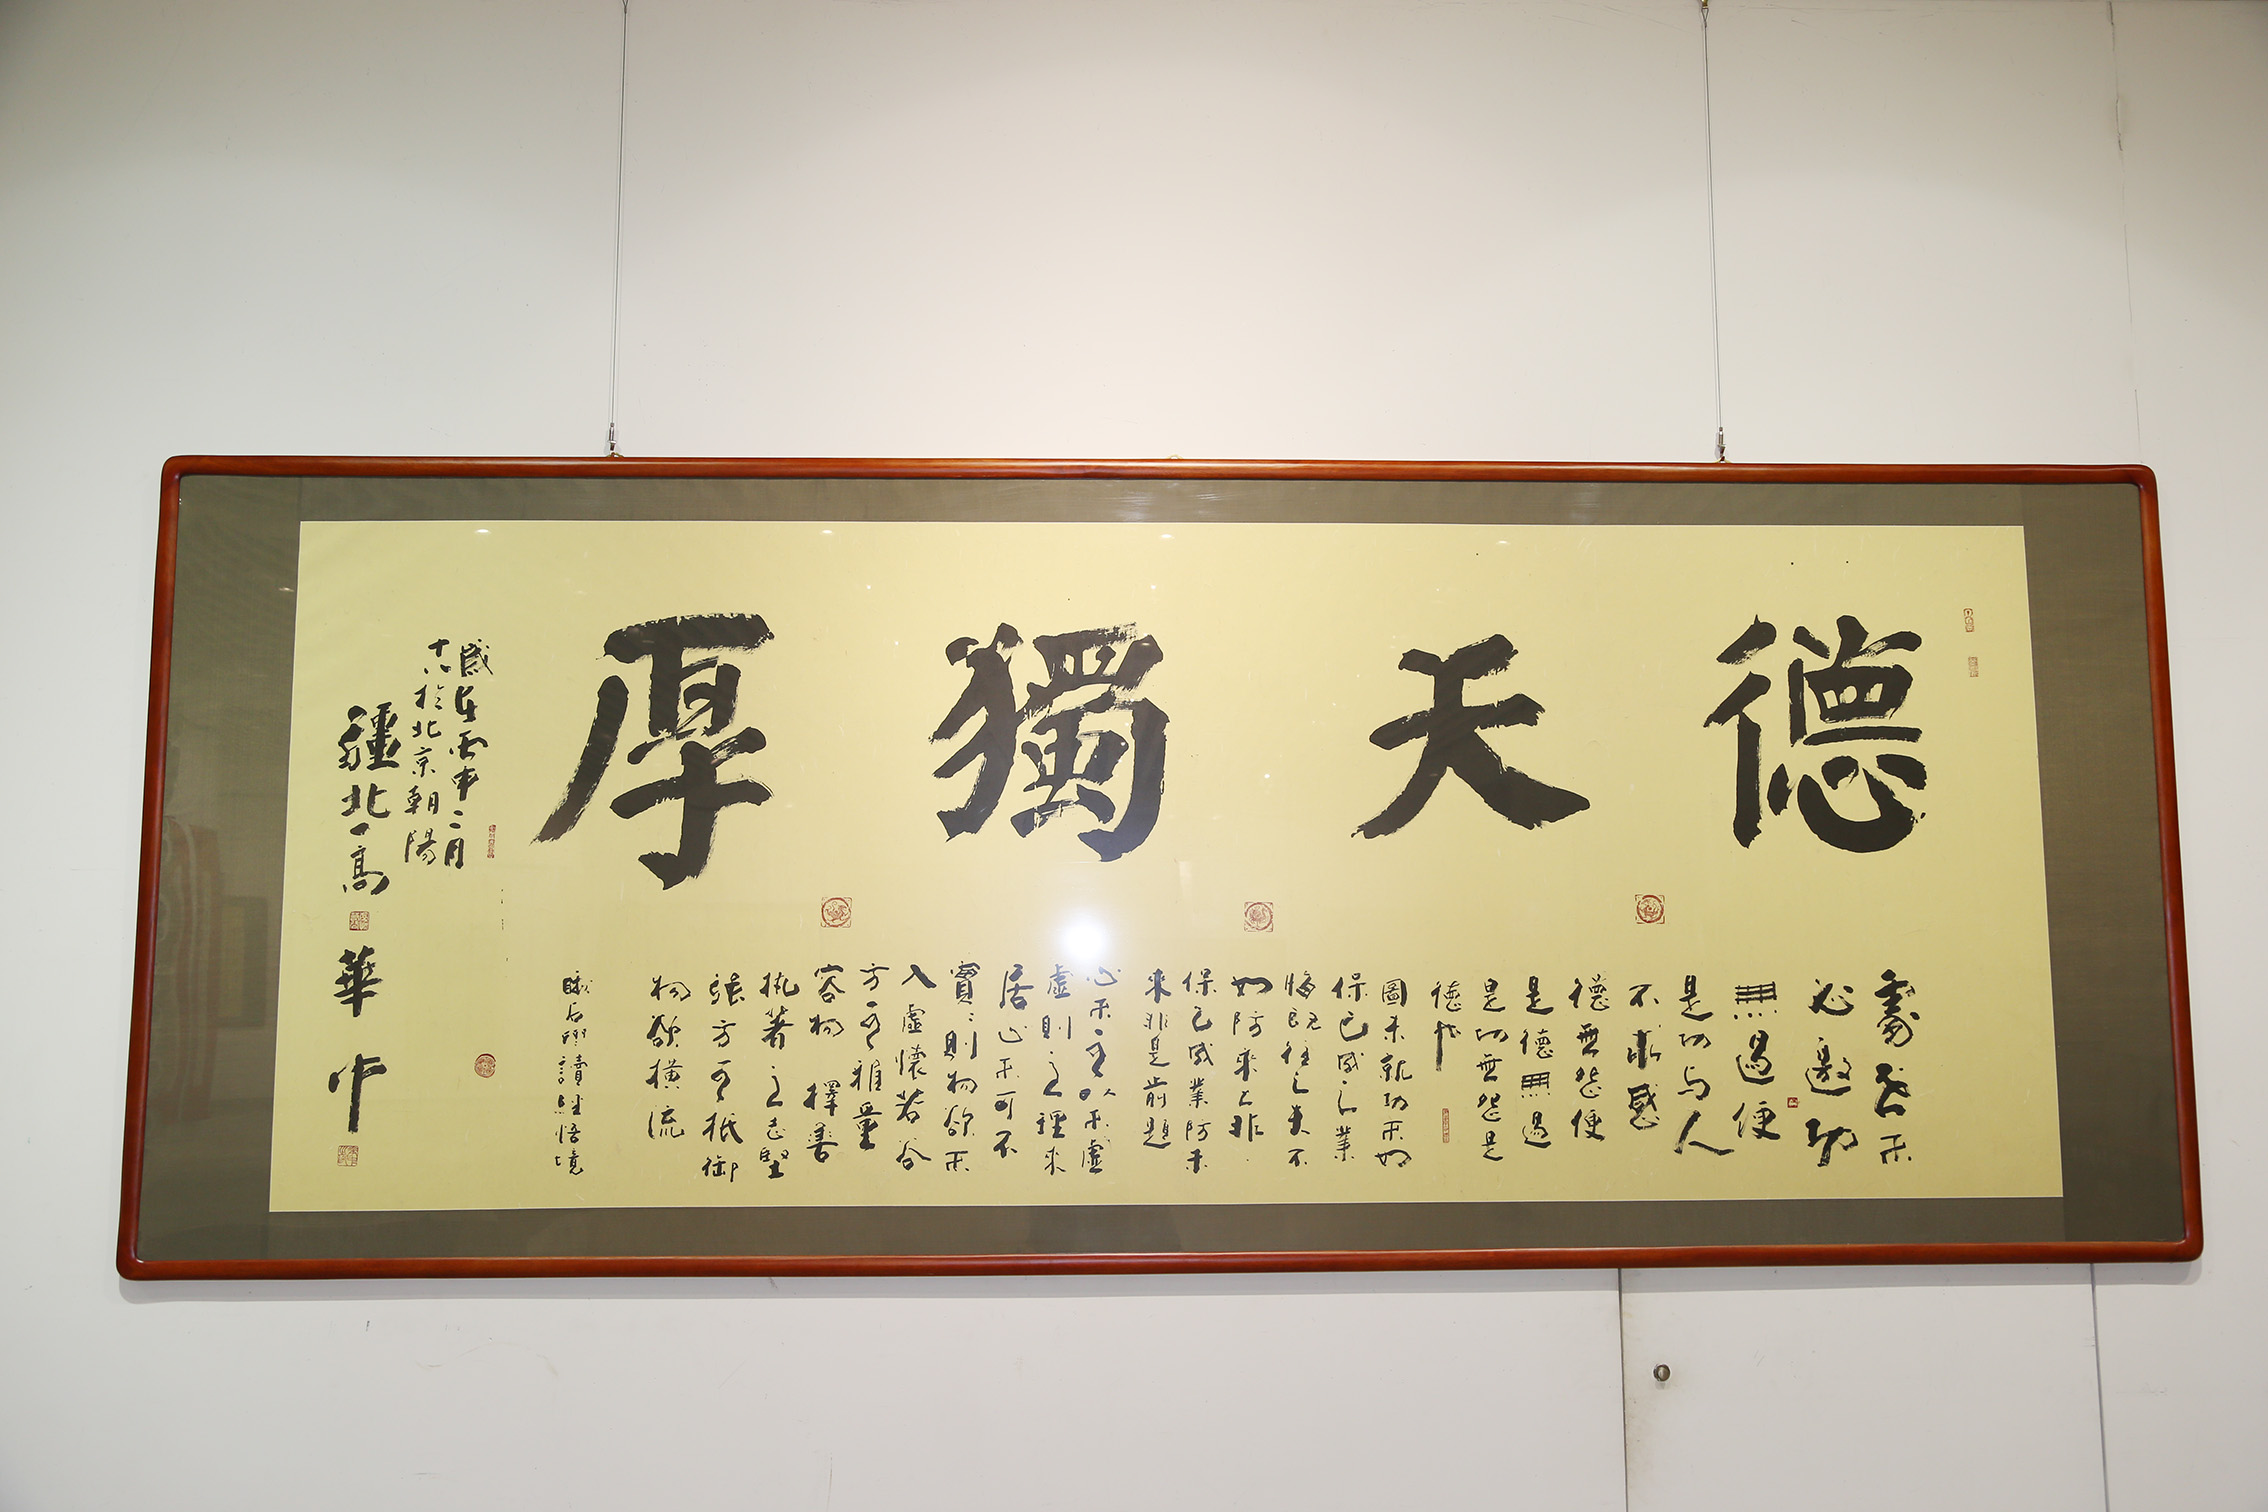 德天獨厚
處世不
必邀功
無過便
是功与人
不求感
德無怨便
是德無過
是功無怨是
德
圖未就功不如
保已成之業
悔既往之失不
如防來之非
保已成業防未
來非是前題
心不可以不虛
虛則之理來
居心不可不
實:則物欲不
入虛懷若谷
方可雅量
容物擇善
執著之志堅
張方可抵御
物欲橫流
后讀經悟境
歲在丙申二月
十八於北京朝陽
疆北一高
華中